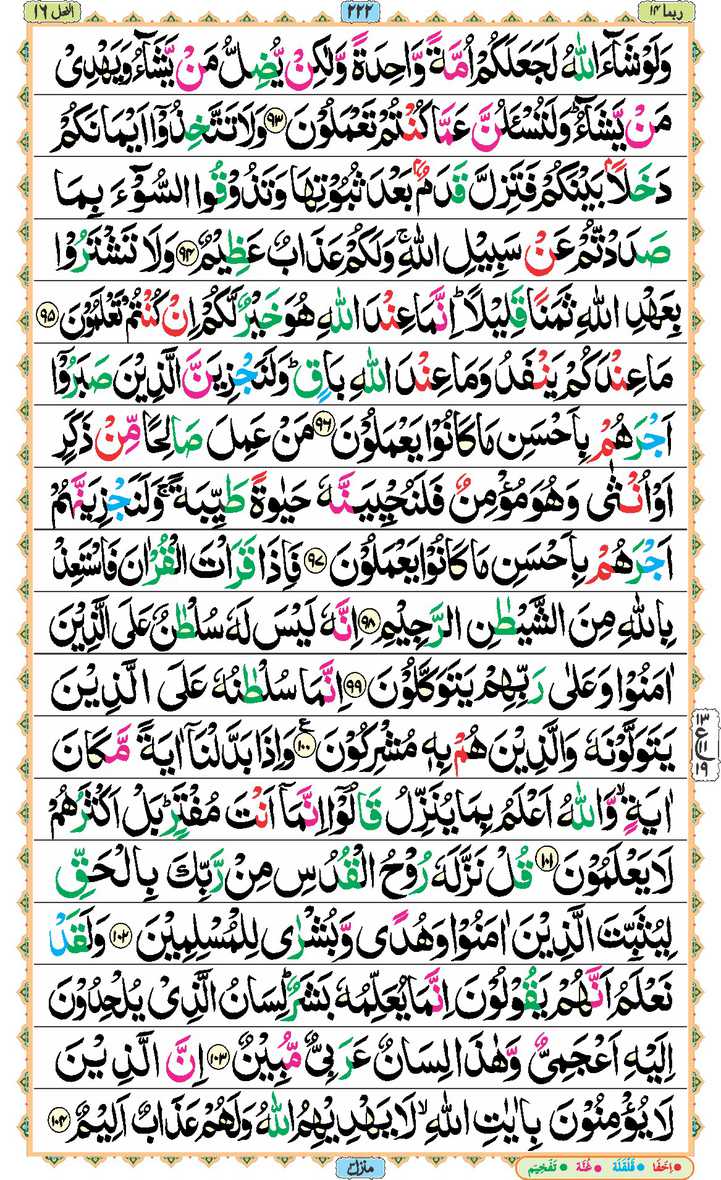 ربما ١٤
٢٢٢
النحل ١٦
وَلَوْ شَآءَ اللّٰهُ لَجَعَلَكُمْ اُمَّةً وَّاحِدَةً وَّلٰكِنْ يُّضِلُّ مَنْ يَّشَآءُ وَيَهْدِىْ
مَنْ يَّشَآءُ ؕ وَلَتُسْئَلُنَّ عَمَّا كُنْتُمْ تَعْمَلُوْنَ ۹۳ وَلَا تَتَّخِذُوْۤا اَيْمَانَكُمْ
دَخَلًاۢ بَيْنَكُمْ فَتَزِلَّ قَدَمٌۢ بَعْدَ ثُبُوْتِهَا وَتَذُوْقُوا السُّوْٓءَ بِمَا
صَدَدْتُّمْ عَنْ سَبِيْلِ اللّٰهِ ۚ وَلَكُمْ عَذَابٌ عَظِيْمٌ ۹۴ وَلَا تَشْتَرُوْا
بِعَهْدِ اللّٰهِ ثَمَنًا قَلِيْلًا ؕ اِنَّمَا عِنْدَ اللّٰهِ هُوَ خَيْرٌ لَّكُمْ اِنْ كُنْتُمْ تَعْلَمُوْنَ ۹۵
مَا عِنْدَكُمْ يَنْفَدُ وَمَا عِنْدَ اللّٰهِ بَاقٍ ؕ وَلَنَجْزِيَنَّ الَّذِيْنَ صَبَرُوْۤا
اَجْرَهُمْ بِاَحْسَنِ مَا كَانُوْا يَعْمَلُوْنَ ۹۶ مَنْ عَمِلَ صَالِحًا مِّنْ ذَكَرٍ
اَوْ اُنْثٰى وَهُوَ مُؤْمِنٌ فَلَنُحْيِيَنَّهٗ حَيٰوةً طَيِّبَةً ۚ وَلَنَجْزِيَنَّهُمْ
اَجْرَهُمْ بِاَحْسَنِ مَا كَانُوْا يَعْمَلُوْنَ ۹۷ فَاِذَا قَرَاْتَ الْقُرْاٰنَ فَاسْتَعِذْ
بِاللّٰهِ مِنَ الشَّيْطٰنِ الرَّجِيْمِ ۹۸ اِنَّهٗ لَيْسَ لَهٗ سُلْطٰنٌ عَلَى الَّذِيْنَ
اٰمَنُوْا وَعَلٰى رَبِّهِمْ يَتَوَكَّلُوْنَ ۹۹ اِنَّمَا سُلْطٰنُهٗ عَلَى الَّذِيْنَ
يَتَوَلَّوْنَهٗ وَالَّذِيْنَ هُمْ بِهٖ مُشْرِكُوْنَ ۱۰۰ ع وَاِذَا بَدَّلْنَاۤ اٰيَةً مَّكَانَ
١٣
ع
١٩
اٰيَةٍ ۙ وَّاللّٰهُ اَعْلَمُ بِمَا يُنَزِّلُ قَالُوْۤا اِنَّمَاۤ اَنْتَ مُفْتَرٍ ؕ بَلْ اَكْثَرُهُمْ
لَا يَعْلَمُوْنَ ۱۰۱ قُلْ نَزَّلَهٗ رُوْحُ الْقُدُسِ مِنْ رَّبِّكَ بِالْحَقِّ
لِيُثَبِّتَ الَّذِيْنَ اٰمَنُوْا وَهُدًى وَّبُشْرٰى لِلْمُسْلِمِيْنَ ۱۰۲ وَلَقَدْ
نَعْلَمُ اَنَّهُمْ يَقُوْلُوْنَ اِنَّمَا يُعَلِّمُهٗ بَشَرٌ ؕ لِسَانُ الَّذِىْ يُلْحِدُوْنَ
اِلَيْهِ اَعْجَمِىٌّ وَّهٰذَا لِسَانٌ عَرَبِىٌّ مُّبِيْنٌ ۱۰۳ اِنَّ الَّذِيْنَ
لَا يُؤْمِنُوْنَ بِاٰيٰتِ اللّٰهِ ۙ لَا يَهْدِيْهِمُ اللّٰهُ وَلَهُمْ عَذَابٌ اَلِيْمٌ ۱۰۴
منزل ٣
اِخْفَا قَلْقَلَة غُنَّة تَفْخِيْم